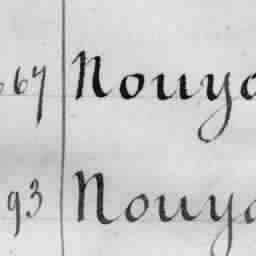 67 Nouya
93 Nouya